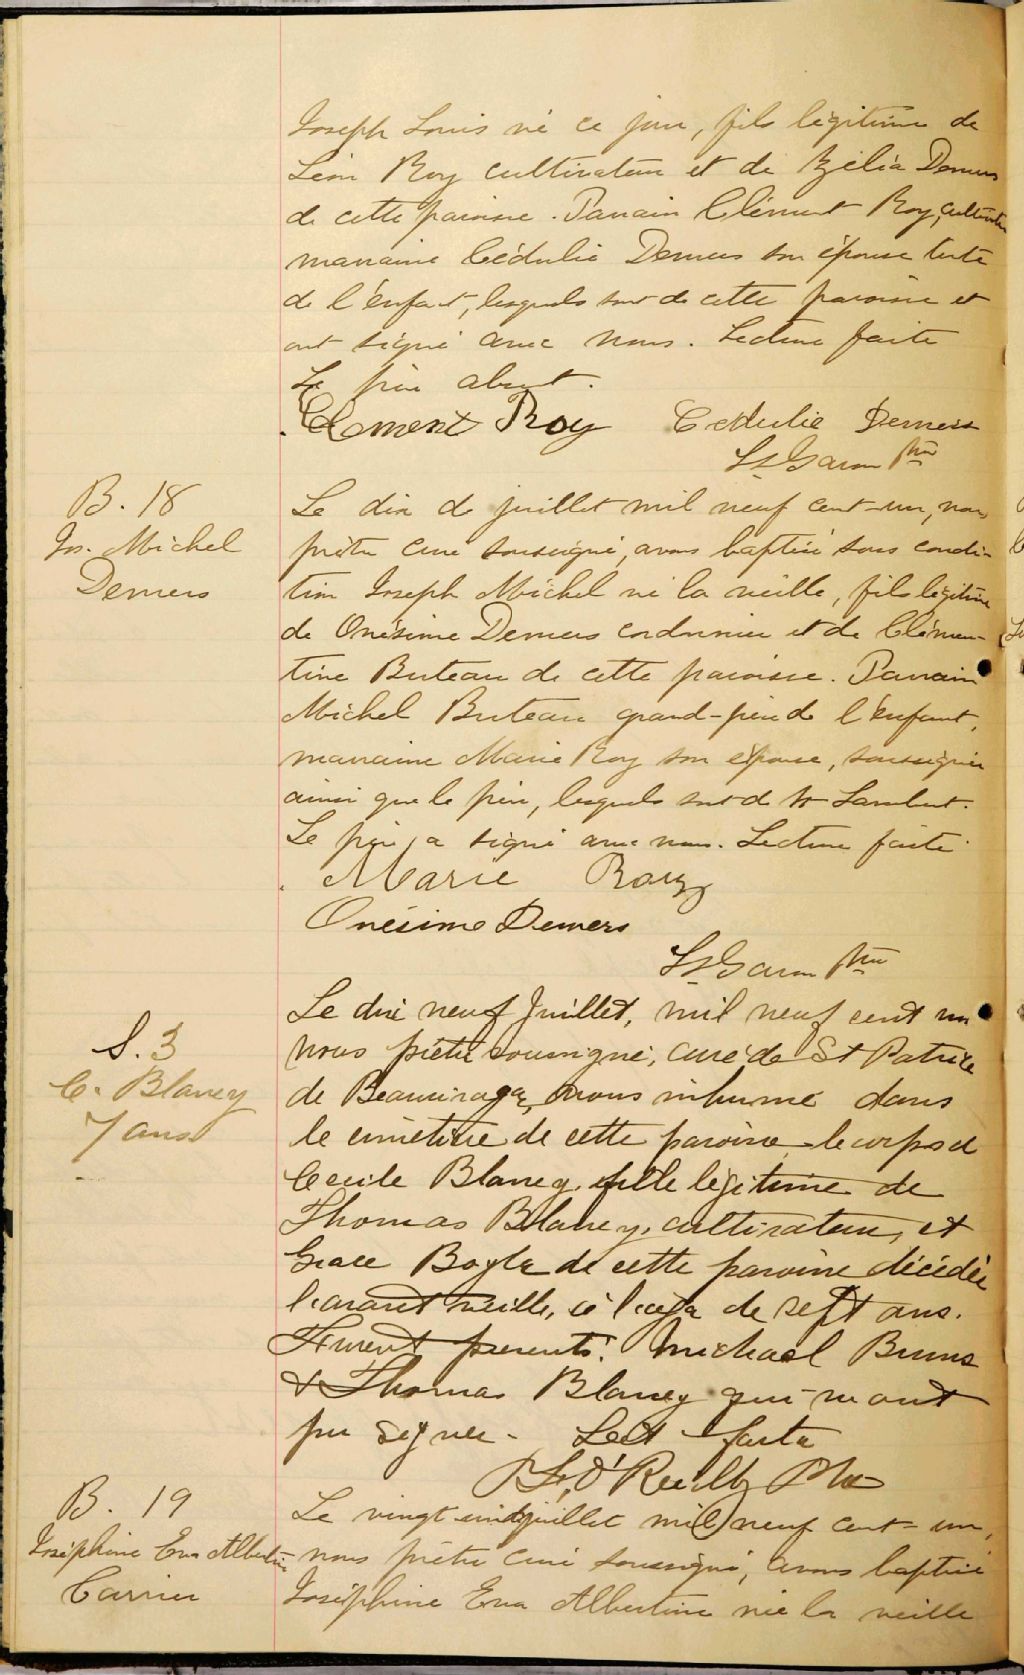 Joseph Louis né ce jour, fils légitime de
Léon Roy cultivateur et de Zélia Demers
de cette paroisse. Parrain Clément Roy, cultivateur
marraine Cédulie Demers son épouse tante
de l'enfant, lesquels sont de cette paroisse et
ont signé avec nous. Lecture faite
Le père absent.
Clement Roy Cedulie Demers
Ls Garon Ptre
B. 18
Jos. Michel
Demers
Le dix de juillet mil neuf cent-un, nous
prêtre curé soussigné, avons baptisé sous condi-
tion Joseph Michel né la veille, fils légitime
de Onésime Demers cordonnier et de Clémen-
tine Buteau de cette paroisse. Parrain
Michel Buteau grand-père de l'enfant,
marraine Marie Roy son épouse, soussignée
ainsi que le père, lesquels sont de St Lambert.
Le père a signé avec nous. Lecture faite
Marie Roy
Onésime Demers
Ls Garon Ptre
S. 3
C. Blaney
7 ans
Le dix neuf Juillet, mil neuf cent un
nous prêtre soussigné, curé de St Patrice
de Beaurivage, avons inhumé dans
le cimetière de cette paroisse le corps de
Cecile Blaney, fille légitime de
Thomas Blaney, cultivateur, et
Grace Boyle de cette paroisse décédée
l'avant veille, à l'age de sept ans.
Furent presents: Michael Burns
& Thomas Blaney qui n'ont
pu signer. Lect faite
O'Reilly Ptre
B. 19
Joséphine Eva Albertine
Carrier
Le vingt-un juillet mil neuf cent-un,
nous prêtre curé soussigné, avons baptisé
Joséphine Eva Albertine née la veille